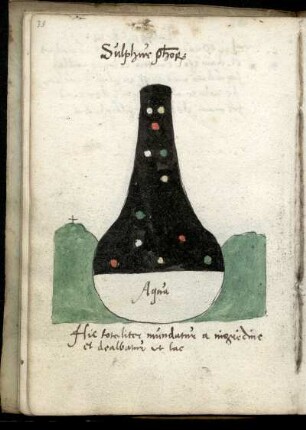 Sulphur
Aqua
Hic totaliter mundatur a nigredine
et dealbatur ut lac